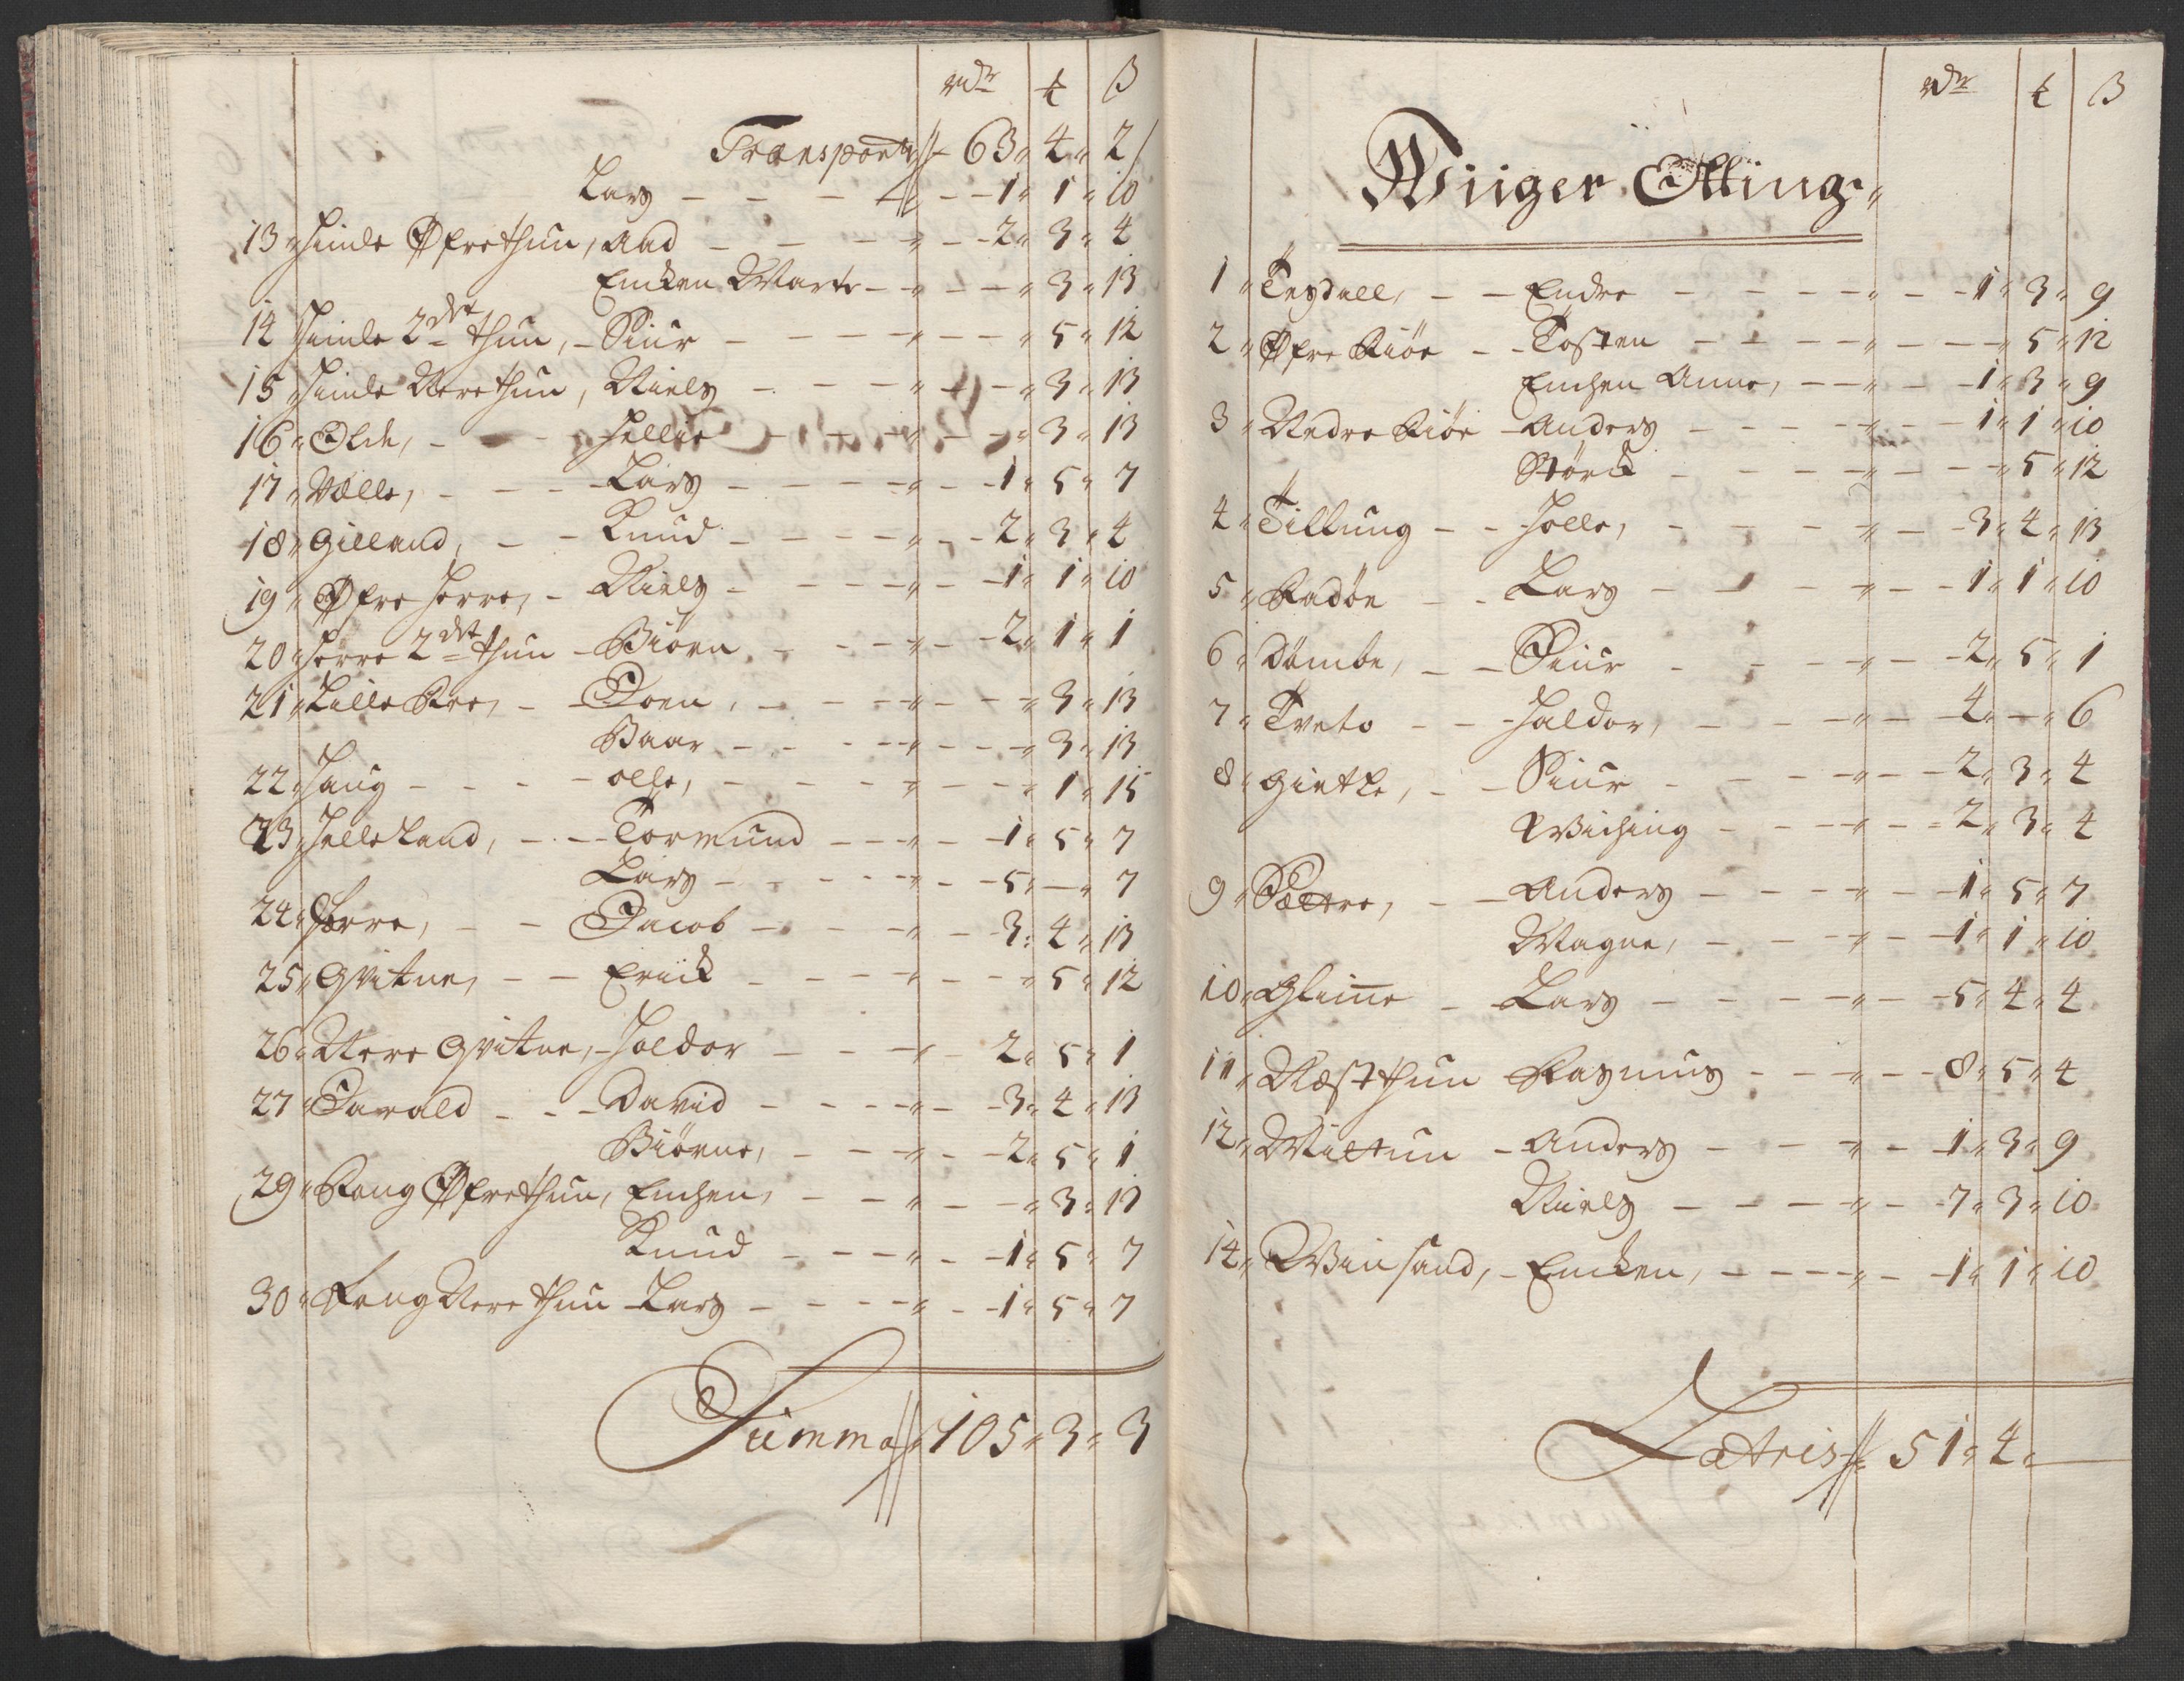 rdr ₰ ß
Transport 63 " 4 " 2
Lars - - - 1 " 1 " 10
13 " Himle Øfrethun, Aad - - - 2 " 3 " 4
Enken Marte - - - " 3 " 13
14 Himle 2det thun, - Siur - - - " 5 " 12
15 " Himle Nerethun, Niels - - - " 3 " 13
16 " Olde, - - - Hellie - - - " 3 " 13
17 " Wælle, - - - Lars - - - 1 " 5 " 7
18 " Gilland, - - Knud - - - 2 " 3 " 4
19 " Øfre Herre, - Niels - - - 1 " 1 " 10
20 " Herre 2det thun - Biørn - - - 2 " 1 " 1
21 " Lille Ree, - - Joen, - - - " 3 " 13
Baar - - - " 3 " 13
22 " Haug - - - olle, - - - " 1 " 15
23 " Helleland, - - Tormund - - - 1 " 5 " 7
Lars - - - 5 " - " 7
24 " Hærre, - - Jacob - - - 3 " 4 " 13
25 " Gvitne, - - Eriik - - - " 5 " 12
26 " Nere Gvitne, - Haldor - - - 2 " 5 " 1
27 " Jarald - - - David - - - 3 " 4 " 13
Biørne, - - - 2 " 5 " 1
29 " Rong Øfrethun, Enchen, - - " 3 " 13
Knud - - - 1 " 5 " 7
30 " Rong Nere thun - Lars - - - 1 " 5 " 7
Summa 105 " 3 " 3
rdr ₰ ß
Wiiger Otting "
1 " Trydall, - - Endre - - - 1 " 3 " 9
2 " Øfre Kiøe - - Tosten - - - " 5 " 12
Enchen Anne, - - - 1 " 3 " 9
3 " Nedre Kiøe - Anders - - - 1 " 1 " 10
Størk - - - " 5 " 12
4 " Tillung - - Holle, - - - 3 " 4 " 13
5 " Radøe - - Lars - - - 1 " 1 " 10
6 " Dømbe, - - Siur - - - 2 " 5 " 1
7 " Tveto - - Haldor, - - - 4 " - " 6
8 " Gietle, - - Siur - - - 2 " 3 " 4
Wiching - - - 2 " 3 " 4
9 " Sættre, - - Anders - - - 1 " 5 " 7
Magne, - - - 1 " 1 " 10
10 " Glim̅e - Lars - - - 5 " 4 " 4
11 " Næstthun Rasmus - - - 8 " 5 " 4
12 " Mittun - Anders - - - 1 " 3 " 9
Niels - - - 7 " 3 " 10
14 " Winsand, - Enken, - - - 1 " 1 " 10
Latris 51 " 4 " -